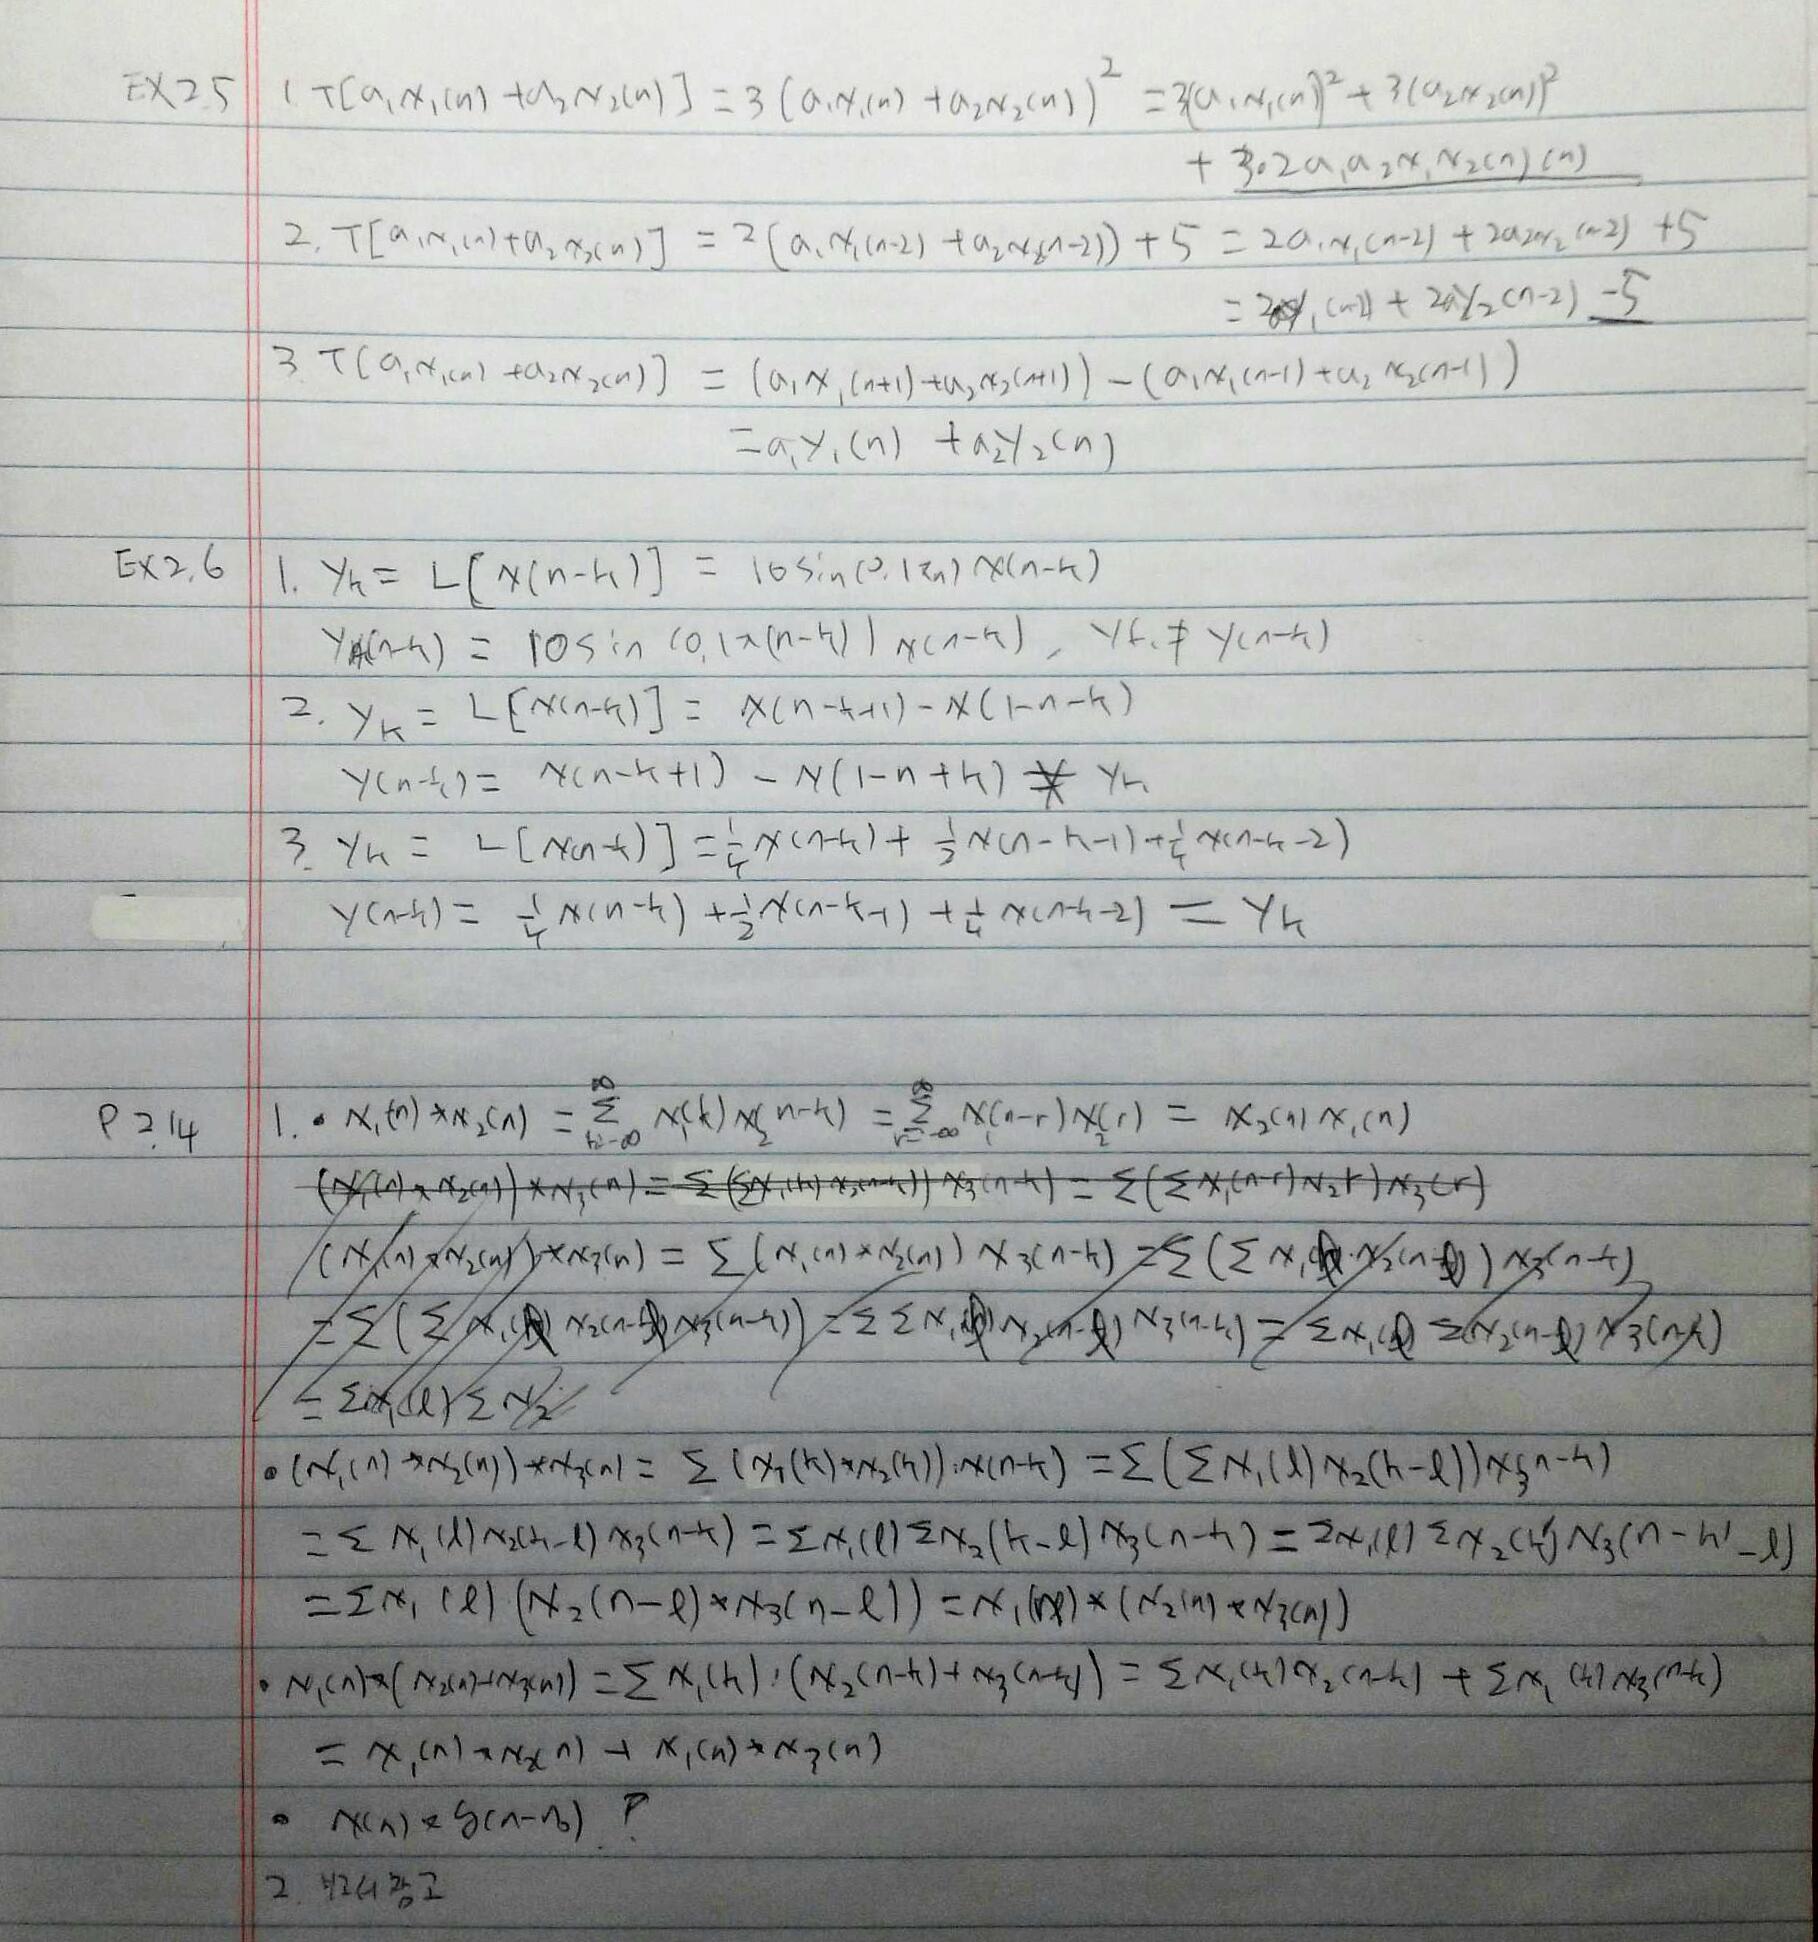 EX 2.5 1. T[a₁x₁(n) + a₂x₂(n)] = 3(a₁x₁(n) + a₂x₂(n))² = 3(a₁x₁(n))² + 3(a₂x₂(n))²
+ 3·2a₁a₂x₁x₂(n)(n)
2. T[a₁x₁(n) + a₂x₂(n)] = 2(a₁x₁(n-2) + a₂x₂(n-2)) + 5 = 2a₁x₁(n-2) + 2a₂x₂(n-2) + 5
= 2a y₁(n-2) + 2a y₂(n-2) - 5
3. T[a₁x₁(n) + a₂x₂(n)] = (a₁x₁(n+1) + a₂x₂(n+1)) - (a₁x₁(n-1) + a₂x₂(n-1))
= a₁y₁(n) + a₂y₂(n)
EX 2.6 1. yₖ = L[x(n-k)] = 10sin(0.1πn) x(n-k)
y(n-k) = 10sin(0.1π(n-k)) x(n-k), yₖ ≠ y(n-k)
2. yₖ = L[x(n-k)] = x(n-k+1) - x(1-n-k)
y(n-k) = x(n-k+1) - x(1-n+k) ≠ yₖ
3. yₖ = L[x(n-k)] = ¼x(n-k) + ½x(n-k-1) + ¼x(n-k-2)
y(n-k) = ¼x(n-k) + ½x(n-k-1) + ¼x(n-k-2) = yₖ
P 2.14 1. • x₁(n) * x₂(n) = Σ_{k=-∞}^{∞} x₁(k) x₂(n-k) = Σ_{r=-∞}^{∞} x₁(n-r) x₂(r) = x₂(n) x₁(n)
(x₁(n) * x₂(n)) * x₃(n) = Σ(Σx₁(k) x₂(n-k)) x₃(n-k) = Σ(Σx₁(n-r) x₂r) x₃(r)
(x₁(n) * x₂(n)) * x₃(n) = Σ(x₁(n) * x₂(n)) x₃(n-k) = Σ(Σx₁(l)·x₂(n-l)) x₃(n-k)
= Σ(Σx₁(l) x₂(n-l) x₃(n-k)) = ΣΣx₁(l) x₂(n-l) x₃(n-k) = Σx₁(l) Σx₂(n-l) x₃(n-k)
= Σx₁(l) Σx₂
• (x₁(n) * x₂(n)) * x₃(n) = Σ(x₁(k) * x₂(k))·x(n-k) = Σ(Σx₁(l) x₂(k-l)) x₃(n-k)
= Σ x₁(l) x₂(k-l) x₃(n-k) = Σx₁(l) Σx₂(k-l) x₃(n-k) = Σx₁(l) Σx₂(k') x₃(n-k'-l)
= Σx₁(l) (x₂(n-l) * x₃(n-l)) = x₁(n) * (x₂(n) * x₃(n))
• x₁(n) * (x₂(n) + x₃(n)) = Σx₁(k)·(x₂(n-k) + x₃(n-k)) = Σx₁(k) x₂(n-k) + Σx₁(k) x₃(n-k)
= x₁(n) * x₂(n) + x₁(n) * x₃(n)
• x(n) * δ(n-n₀) ?
2. 보고서 참고